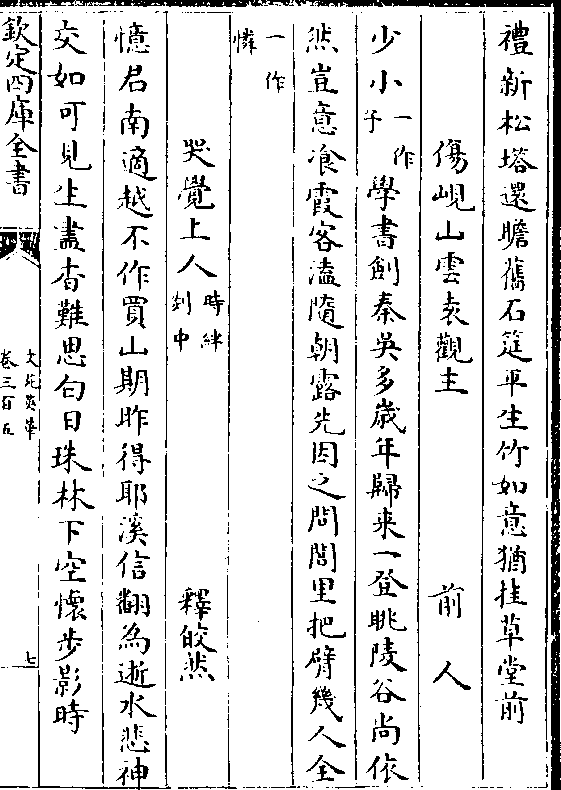 禮新松塔還瞻舊石筵平生竹如意猶挂草堂前
傷峴山雲表觀主　前人
少小一作子學書劍秦吳多歲年歸来一登眺陵谷尚依
然豈意飡霞客溘隨朝露先因之問閭里把臂幾人全
一作憐
哭覺上人時絆剡中　釋皎然
憶君南適越不作買山期昨得耶溪信翻為逝水悲神
交如可見生盡杳難思白日珠林下空懷步影時
欽定四庫全書
文苑英華
卷三百五
七